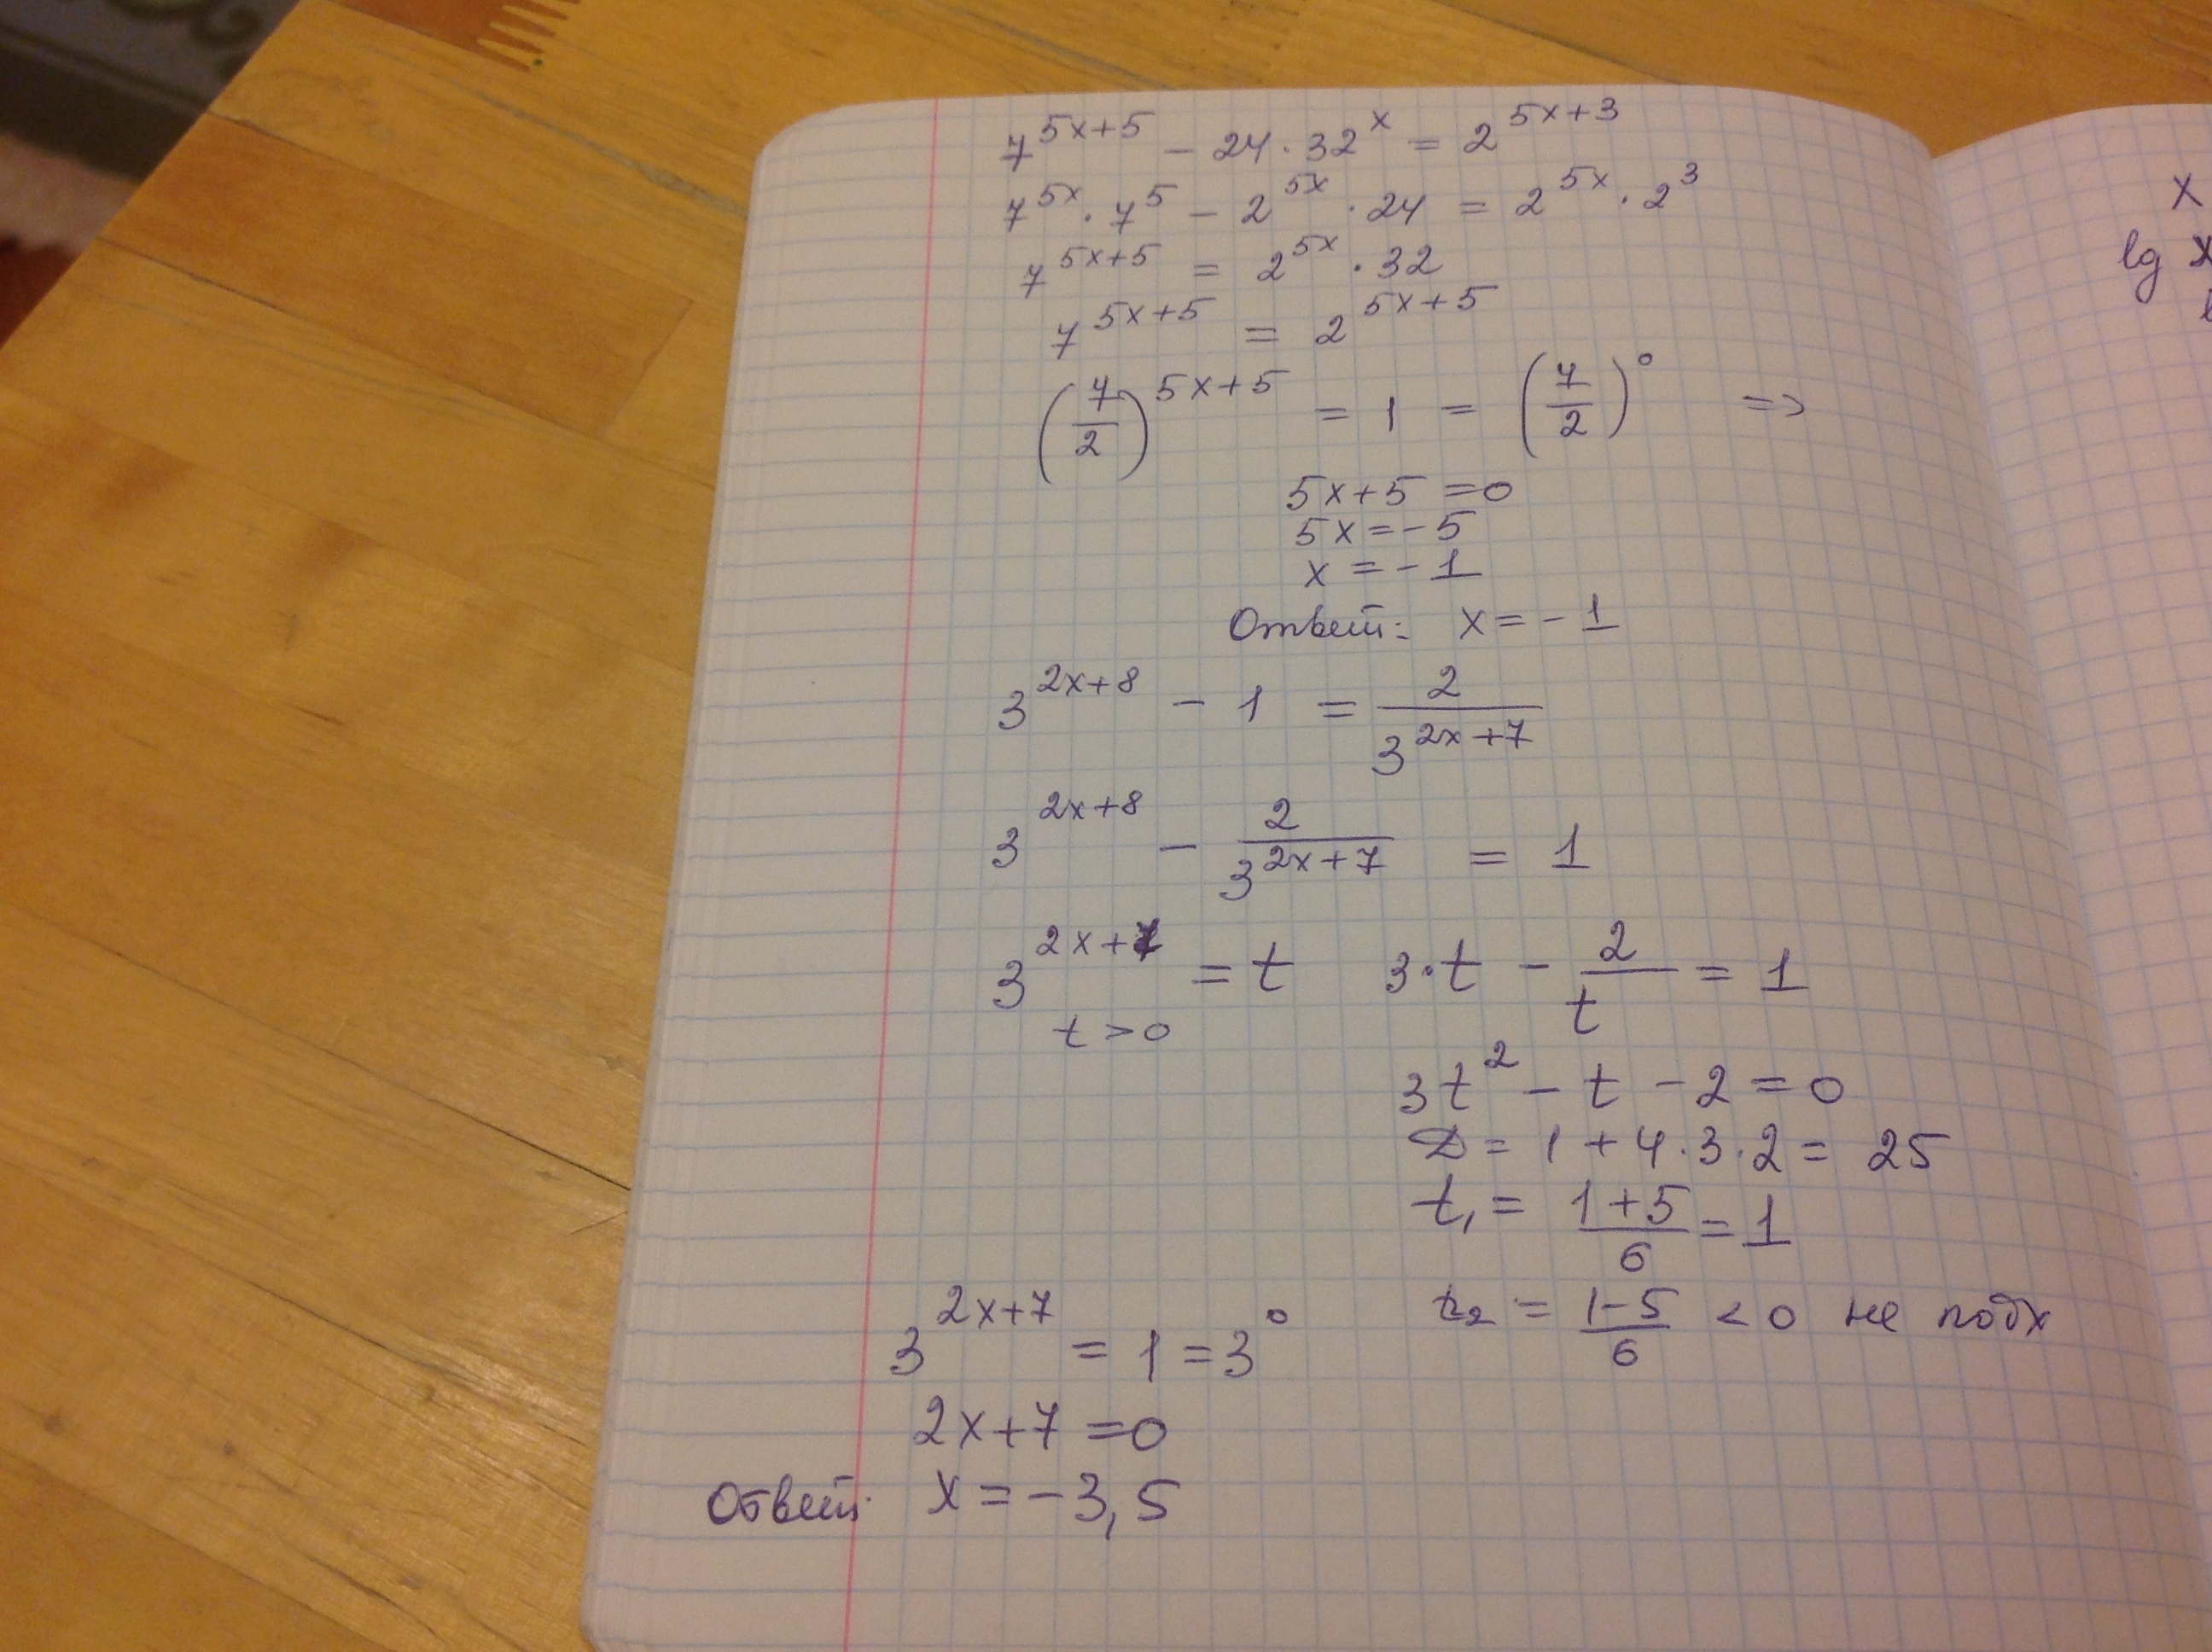 7^{5x+5} - 24·32^x = 2^{5x+3}
7^{5x}·7^5 - 2^{5x}·24 = 2^{5x}·2^3
7^{5x+5} = 2^{5x}·32
7^{5x+5} = 2^{5x+5}
(7/2)^{5x+5} = 1 = (7/2)^0 =>
5x+5=0
5x=-5
x=-1
Ответ: x=-1
3^{2x+8} - 1 = 2/3^{2x+7}
3^{2x+8} - 2/3^{2x+7} = 1
3^{2x+7} = t 3·t - 2/t = 1
t>0
3t^2 - t - 2 = 0
D = 1+4·3·2 = 25
t_1 = (1+5)/6 = 1
t_2 = (1-5)/6 < 0 не подх
3^{2x+7} = 1 = 3^0
2x+7=0
Ответ: x=-3,5
x
lg x